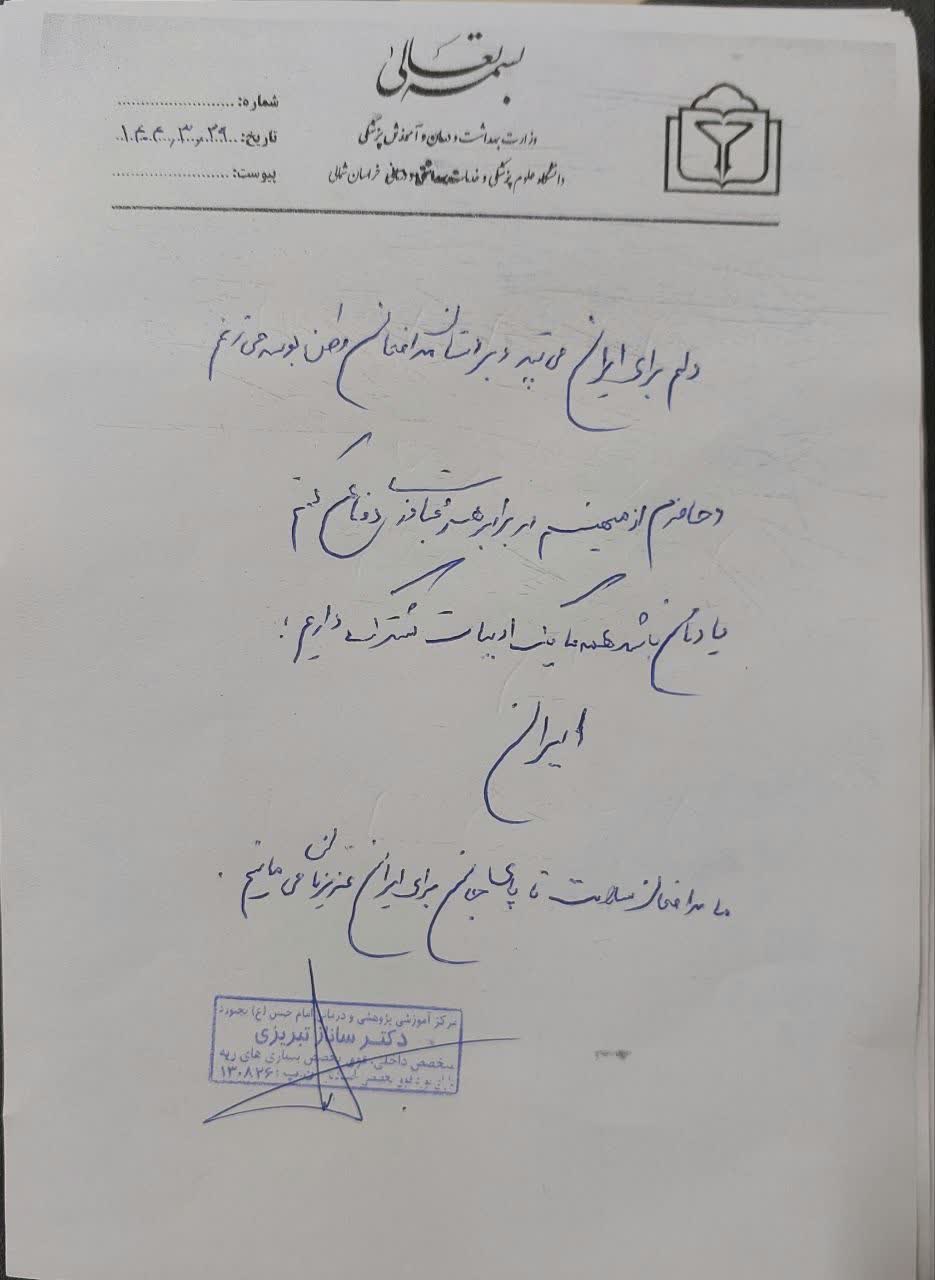 بسمه تعالی
وزارت بهداشت و درمان و آموزش پزشکی
دانشگاه علوم پزشکی و خدمات بهداشتی و درمانی خراسان شمالی
شماره:
تاریخ: ۱۴۰۴,۳,۲۹
پیوست:
دلم برای ایران می تپد و بر دستان مدافعان وطن بوسه می زنم
و حاضرم از میهنم در برابر هر متجاوزی دفاع کنم
یادمان باشد همه ما یک ادبیات مشترک داریم؛
ایران
ما مدافعان سلامت تا پای جان برای ایران عزیزمان می مانیم.
مرکز آموزشی پژوهشی و درمانی امام حسن (ع) بجنورد
دکتر ساناز تبریزی
متخصص داخلی، فوق تخصص بیماری های ریه
دارای بورد فوق تخصصی ن.پ: ۱۳۰۸۲۶